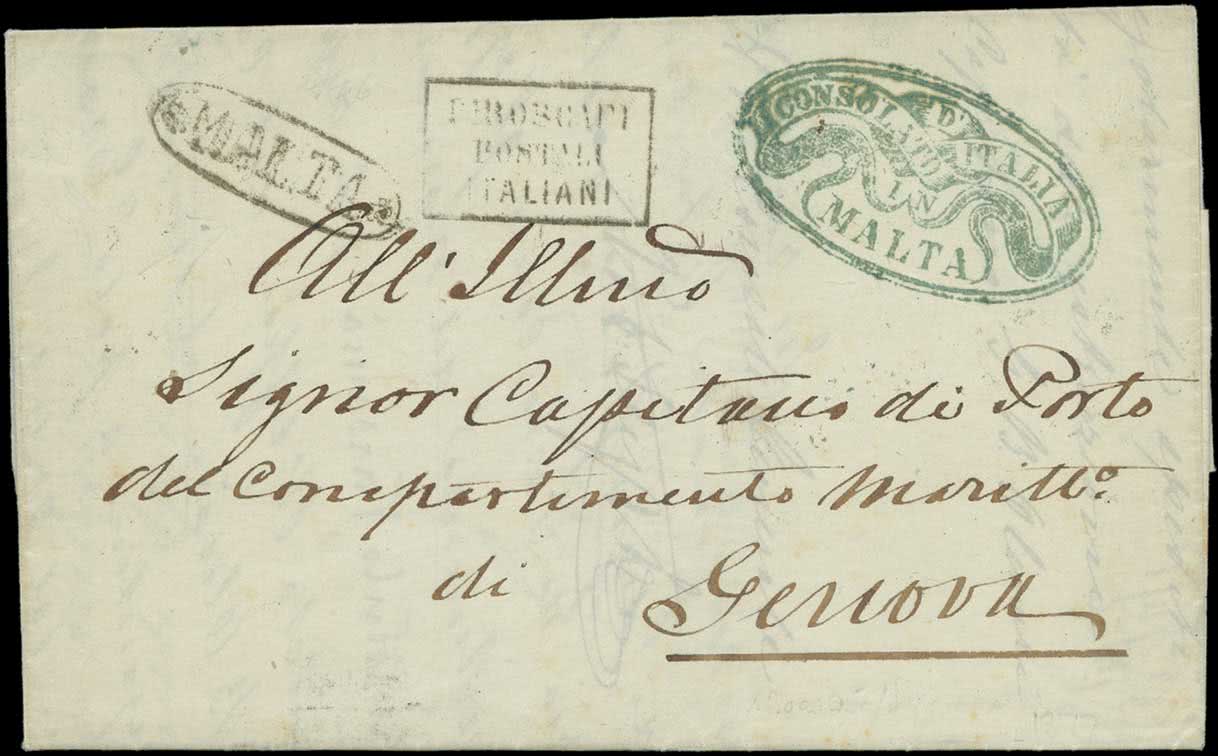 MALTA
PIROSCAFI
POSTALI
ITALIANI
CONSOLATO D'ITALIA
IN
MALTA
All' Illmo
Signor Capitano di Porto
del Compartimento Maritto.
di
Genova